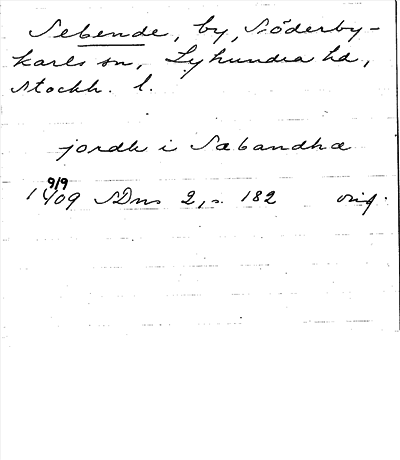 Sebende, by, Söderby-
karls sn, Lyhundra hd,
Stockh. l.
jordh i Sæbandha
9/9
1409 SDns 2, s. 182 orig.